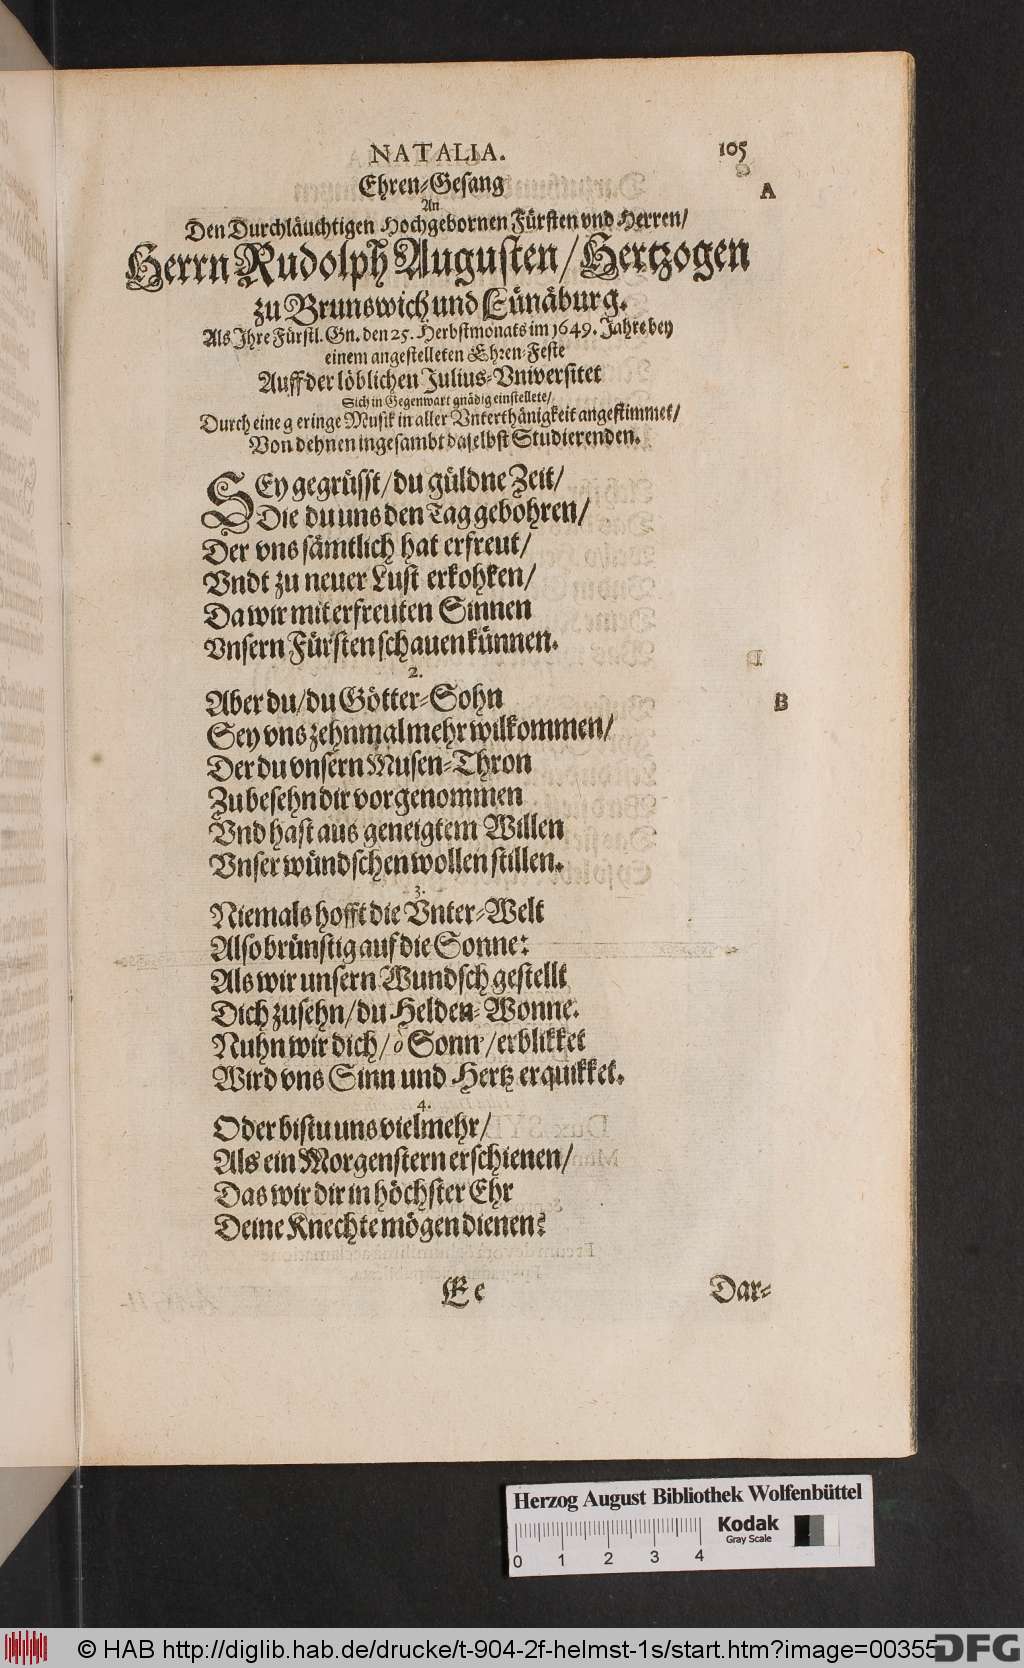 NATALIA. 105
Ehren-Gesang
An
A
Den Durchläuchtigen Hochgebornen Fürsten vnd Herren/
Herrn Rudolph Augusten/Hertzogen
zu Brunswich und Lünäburg.
Als Ihre Fürstl. Gn. den 25. Herbstmonats im 1649. Jahre bey
einem angestelleten Ehren-Feste
Auff der löblichen Julius-Vniversitet
Sich in Gegenwart gnädig einstellete/
Durch eine geringe Musik in aller Vnterthänigkeit angestimmet/
Von dehnen ingesambt daselbst Studierenden.
SEy gegrüsst/du güldne Zeit/
Die du uns den Tag gebohren/
Der vns sämtlich hat erfreut/
Vndt zu neuer Lust erkohken/
Da wir mit erfreuten Sinnen
Vnsern Fürsten schauen künnen.
2.
Aber du/du Götter-Sohn
B
Sey vns zehnmal mehr wilkommen/
Der du vnsern Musen-Thron
Zu besehn dir vorgenommen
Vnd hast aus geneigtem Willen
Vnser wündschen wollen stillen.
3.
Niemals hofft die Vnter-Welt
Also brünstig auf die Sonne:
Als wir unsern Wundsch gestellt
Dich zusehn/du Helden-Wonne.
Nuhn wir dich/ô Sonn'/erblikket
Wird vns Sinn und Hertz erquikket.
4.
Oder bistu uns vielmehr/
Als ein Morgenstern erschienen/
Das wir dir in höchster Ehr
Deine Knechte mögen dienen?
Ee Dar-
Herzog August Bibliothek Wolfenbüttel
0 1 2 3 4
Kodak
Gray Scale
© HAB http://diglib.hab.de/drucke/t-904-2f-helmst-1s/start.htm?image=00355
DFG